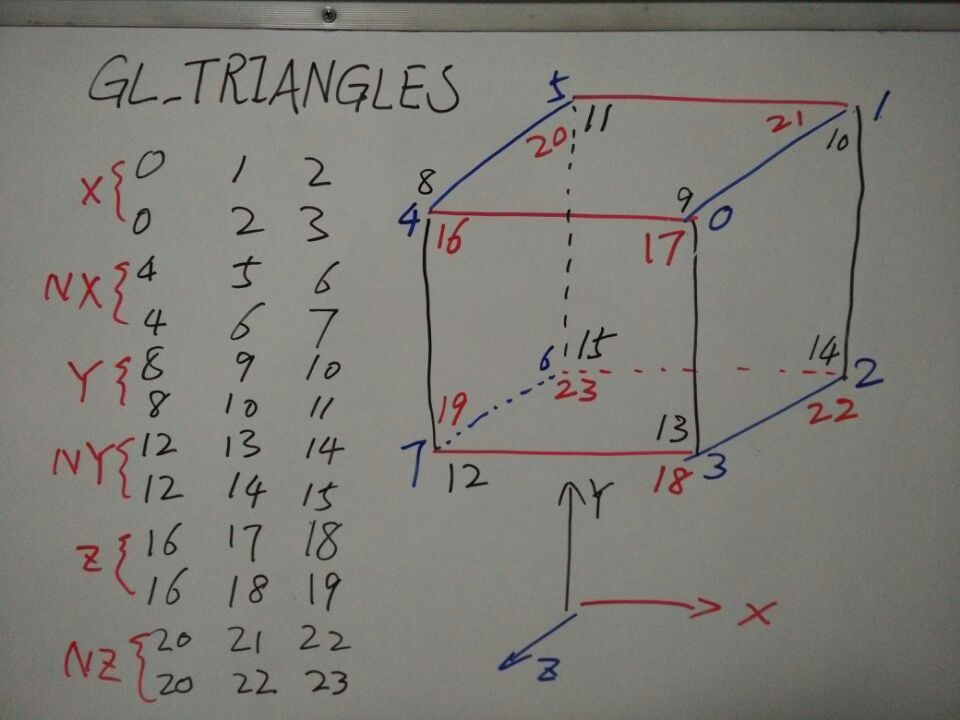 GL_TRIANGLES
X { 0 1 2
0 2 3
NX { 4 5 6
4 6 7
Y { 8 9 10
8 10 11
NY { 12 13 14
12 14 15
Z { 16 17 18
16 18 19
NZ { 20 21 22
20 22 23
5 11 20
21 1 10
8 4 16
9 0 17
6 15 23
14 2 22
19 7 12
13 18 3
Y
X
Z